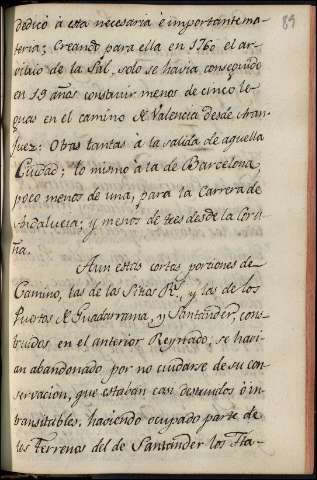 89
dedicó á esta necesaria é importante ma-
teria; Creando para ella en 1760 el ar-
vitrio de la Sal, solo se havia conseguido
en 19 años construir menos de cinco le-
guas en el camino de Valencia desde Aran-
juez: Otras tantas á la salida de aquella
Ciudad; lo mismo á la de Barcelona;
poco menos de una, para la Carrera de
Andalucia; y menos de tres desde la Coru-
ña.
Aun estas cortas porciones de
Camino, las de los Sitios Rs., y las de los
Puertos de Guadarrama, y Santander, cons-
truidos en el anterior Reynado, se havi-
an abandonado por no cuidarse de su con-
servacion, que estaban casi destruidos ó in-
transitables, haviendo ocupado parte de
los Terrenos del de Santander los Ha-